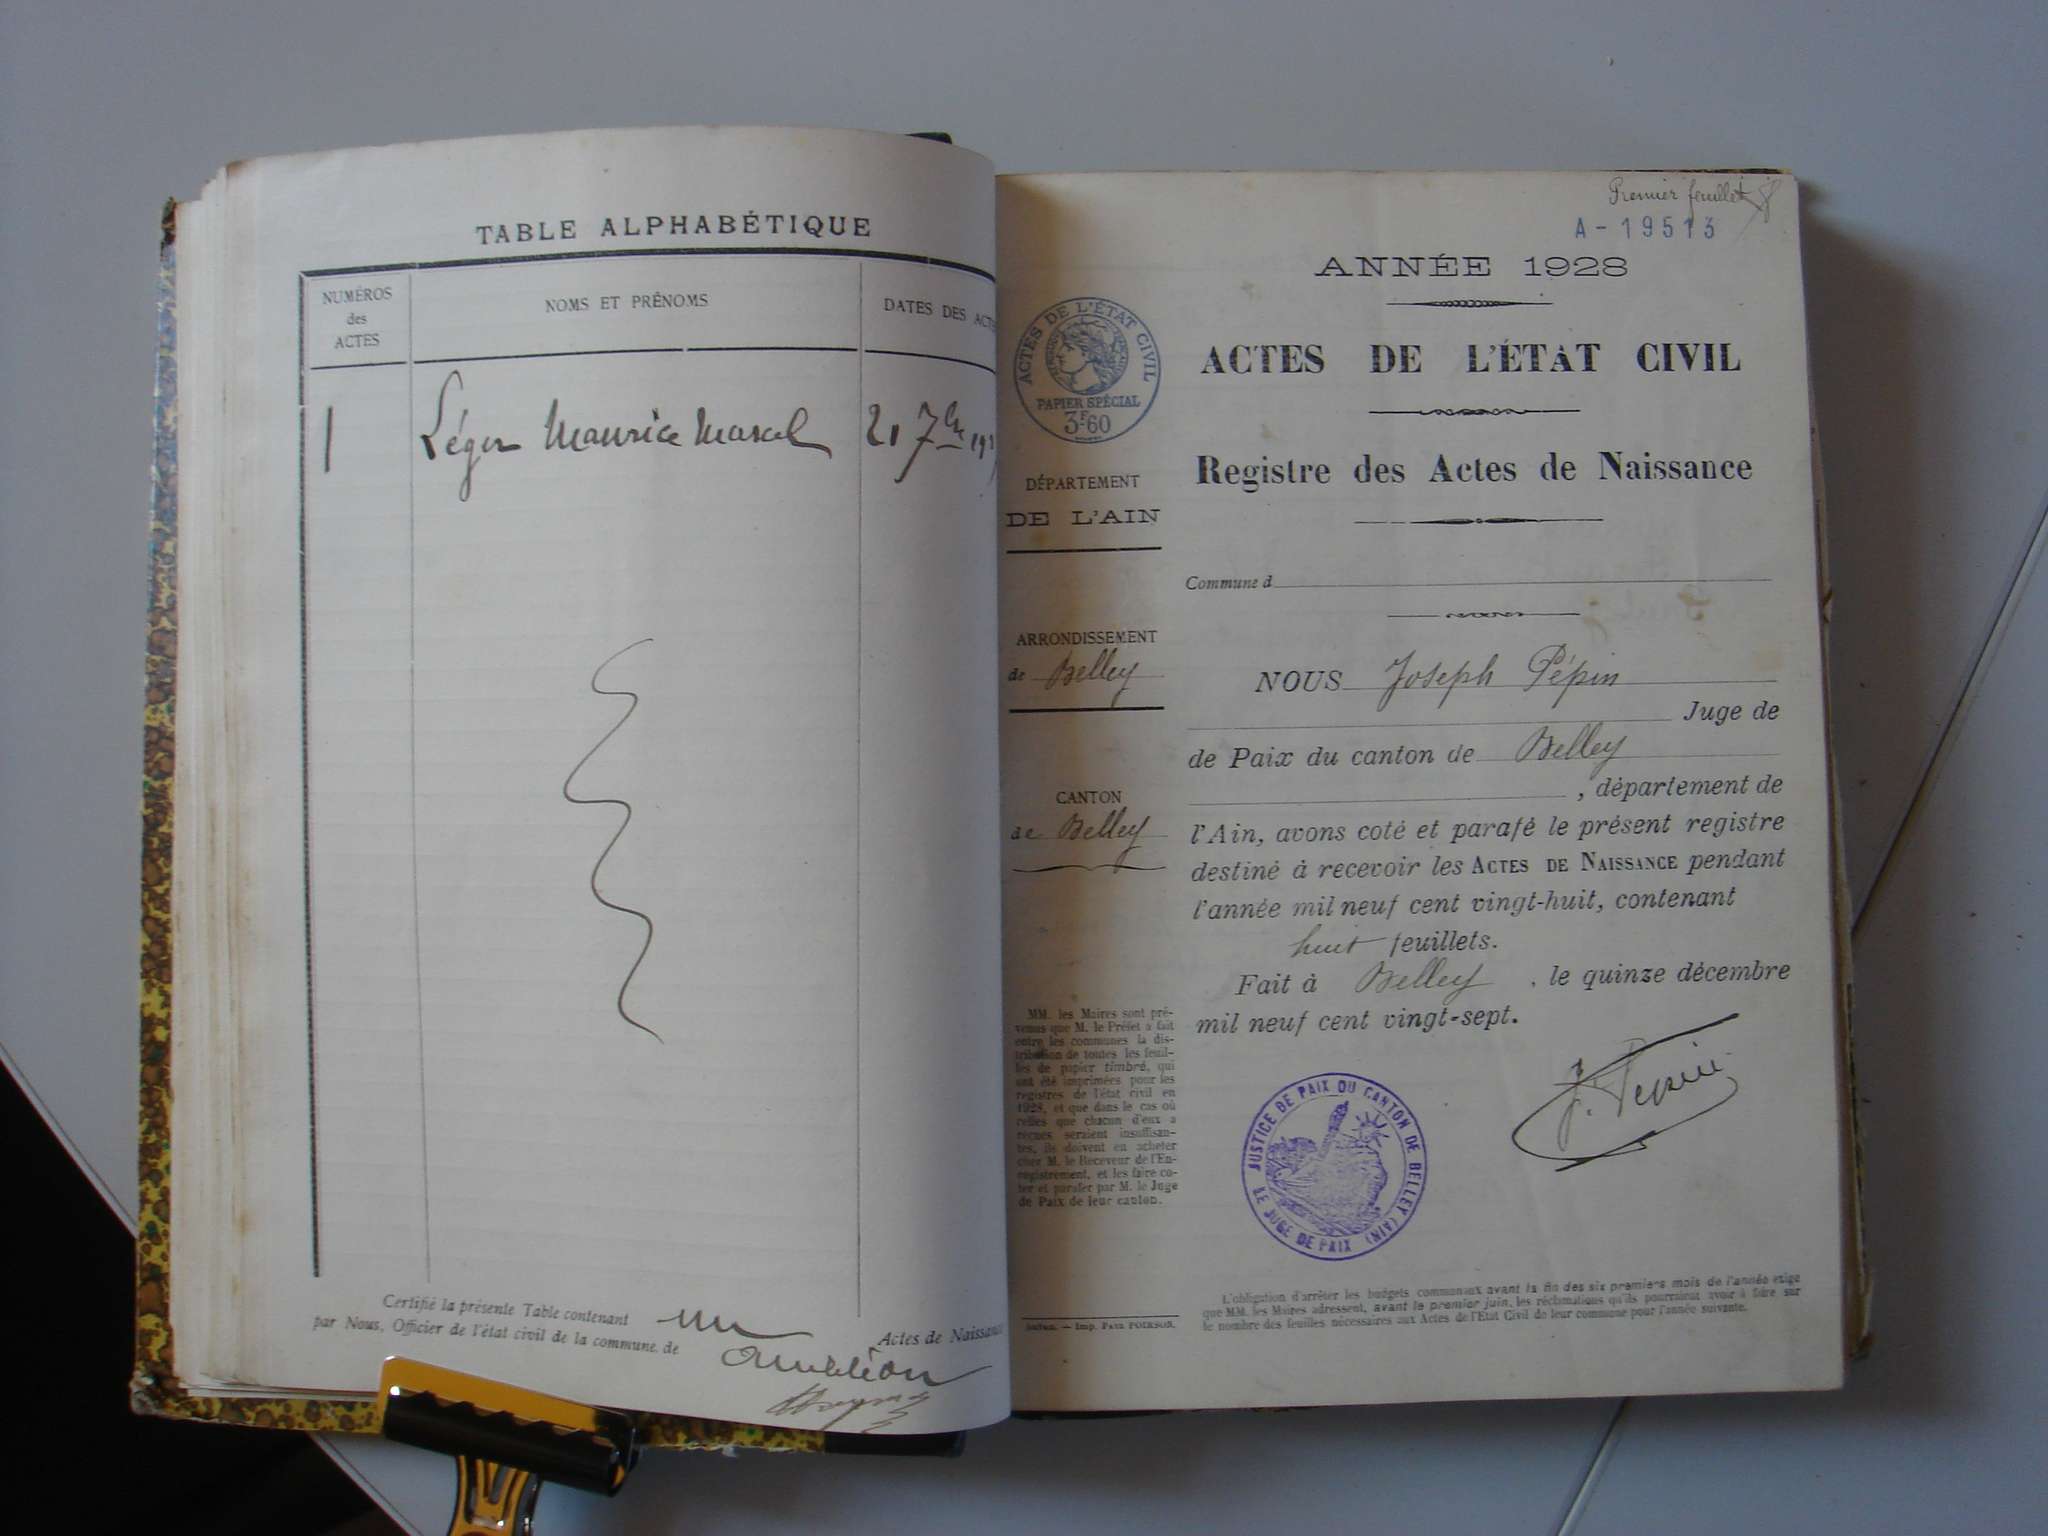 TABLE ALPHABÉTIQUE
NUMÉROS
des
ACTES
NOMS ET PRÉNOMS
DATES DES ACTE
1
Léger Maurice Marcel
21 7bre 19
Certifié la présente Table contenant un Actes de Naissance
par Nous, Officier de l'état civil de la commune de Ambléon
Premier feuillet
A-19513
ANNÉE 1928
ACTES DE L'ÉTAT CIVIL
Registre des Actes de Naissance
ACTES DE L'ÉTAT CIVIL
PAPIER SPÉCIAL
3F60
DÉPARTEMENT
DE L'AIN
ARRONDISSEMENT
de Belley
CANTON
de Belley
MM. les Maires sont pré-
venus que M. le Préfet a fait
entre les communes la dis-
tribution de toutes les feuil-
les de papier timbré, qui
ont été imprimées pour les
registres de l'état civil en
1928, et que dans le cas où
celles que chacun d'eux a
reçues seraient insuffisan-
tes, ils doivent en acheter
chez M. le Receveur de l'En-
registrement, et les faire co-
ter et parafer par M. le Juge
de Paix de leur canton.
Imp. Paul POURSON.
Commune d
NOUS Joseph Pépin
Juge de
de Paix du canton de Belley
, département de
l'Ain, avons coté et parafé le présent registre
destiné à recevoir les ACTES DE NAISSANCE pendant
l'année mil neuf cent vingt-huit, contenant
huit feuillets.
Fait à Belley, le quinze décembre
mil neuf cent vingt-sept.
J. Pépin
JUSTICE DE PAIX DU CANTON DE BELLEY (AIN)
LE JUGE DE PAIX
L'obligation d'arrêter les budgets communaux avant la fin des six premiers mois de l'année exige
que MM. les Maires adressent, avant le premier juin, les réclamations qu'ils pourraient avoir à faire sur
le nombre des feuilles nécessaires aux Actes de l'Etat Civil de leur commune pour l'année suivante.